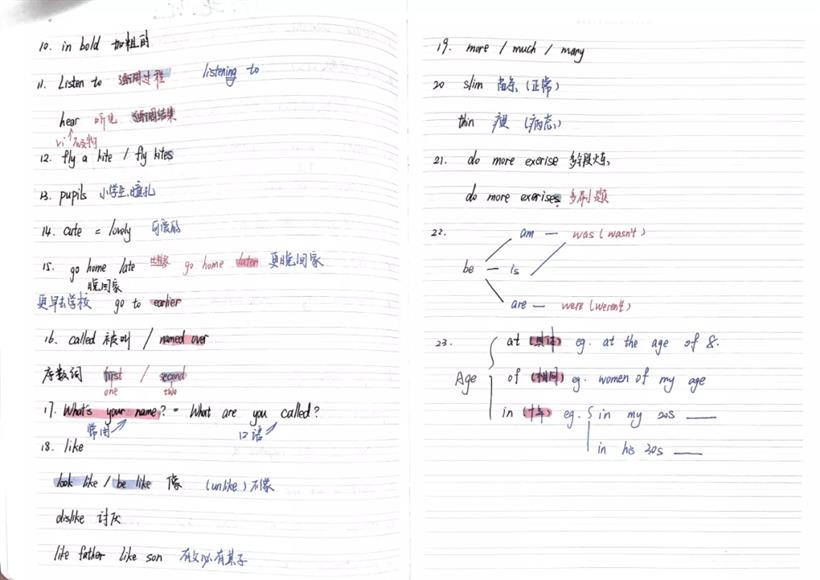 10. in bold 加粗的
11. Listen to 强调过程 listening to
hear 听见 强调结果
vi 不及物
12. fly a kite / fly kites
13. pupils 小学生,瞳孔
14. cute = lovely 可爱的
15. go home late 比较级 go home later 更晚回家
晚回家
更早去学校 go to earlier
16. called 被叫 / named over
序数词 first / second
one two
17. What's your name? = What are you called?
常用 口语
18. like
look like / be like 像 (unlike) 不像
dislike 讨厌
like father like son 有父必有其子
19. more / much / many
20 slim 苗条 (正常)
thin 瘦 (病态)
21. do more exerise 多锻炼
do more exerises 多刷题
22.
am — was (wasn't)
be — is
are — were (weren't)
23.
at (具体) eg. at the age of 8.
Age of (相同) eg. women of my age
in (十年) eg. in my 20s
in his 30s